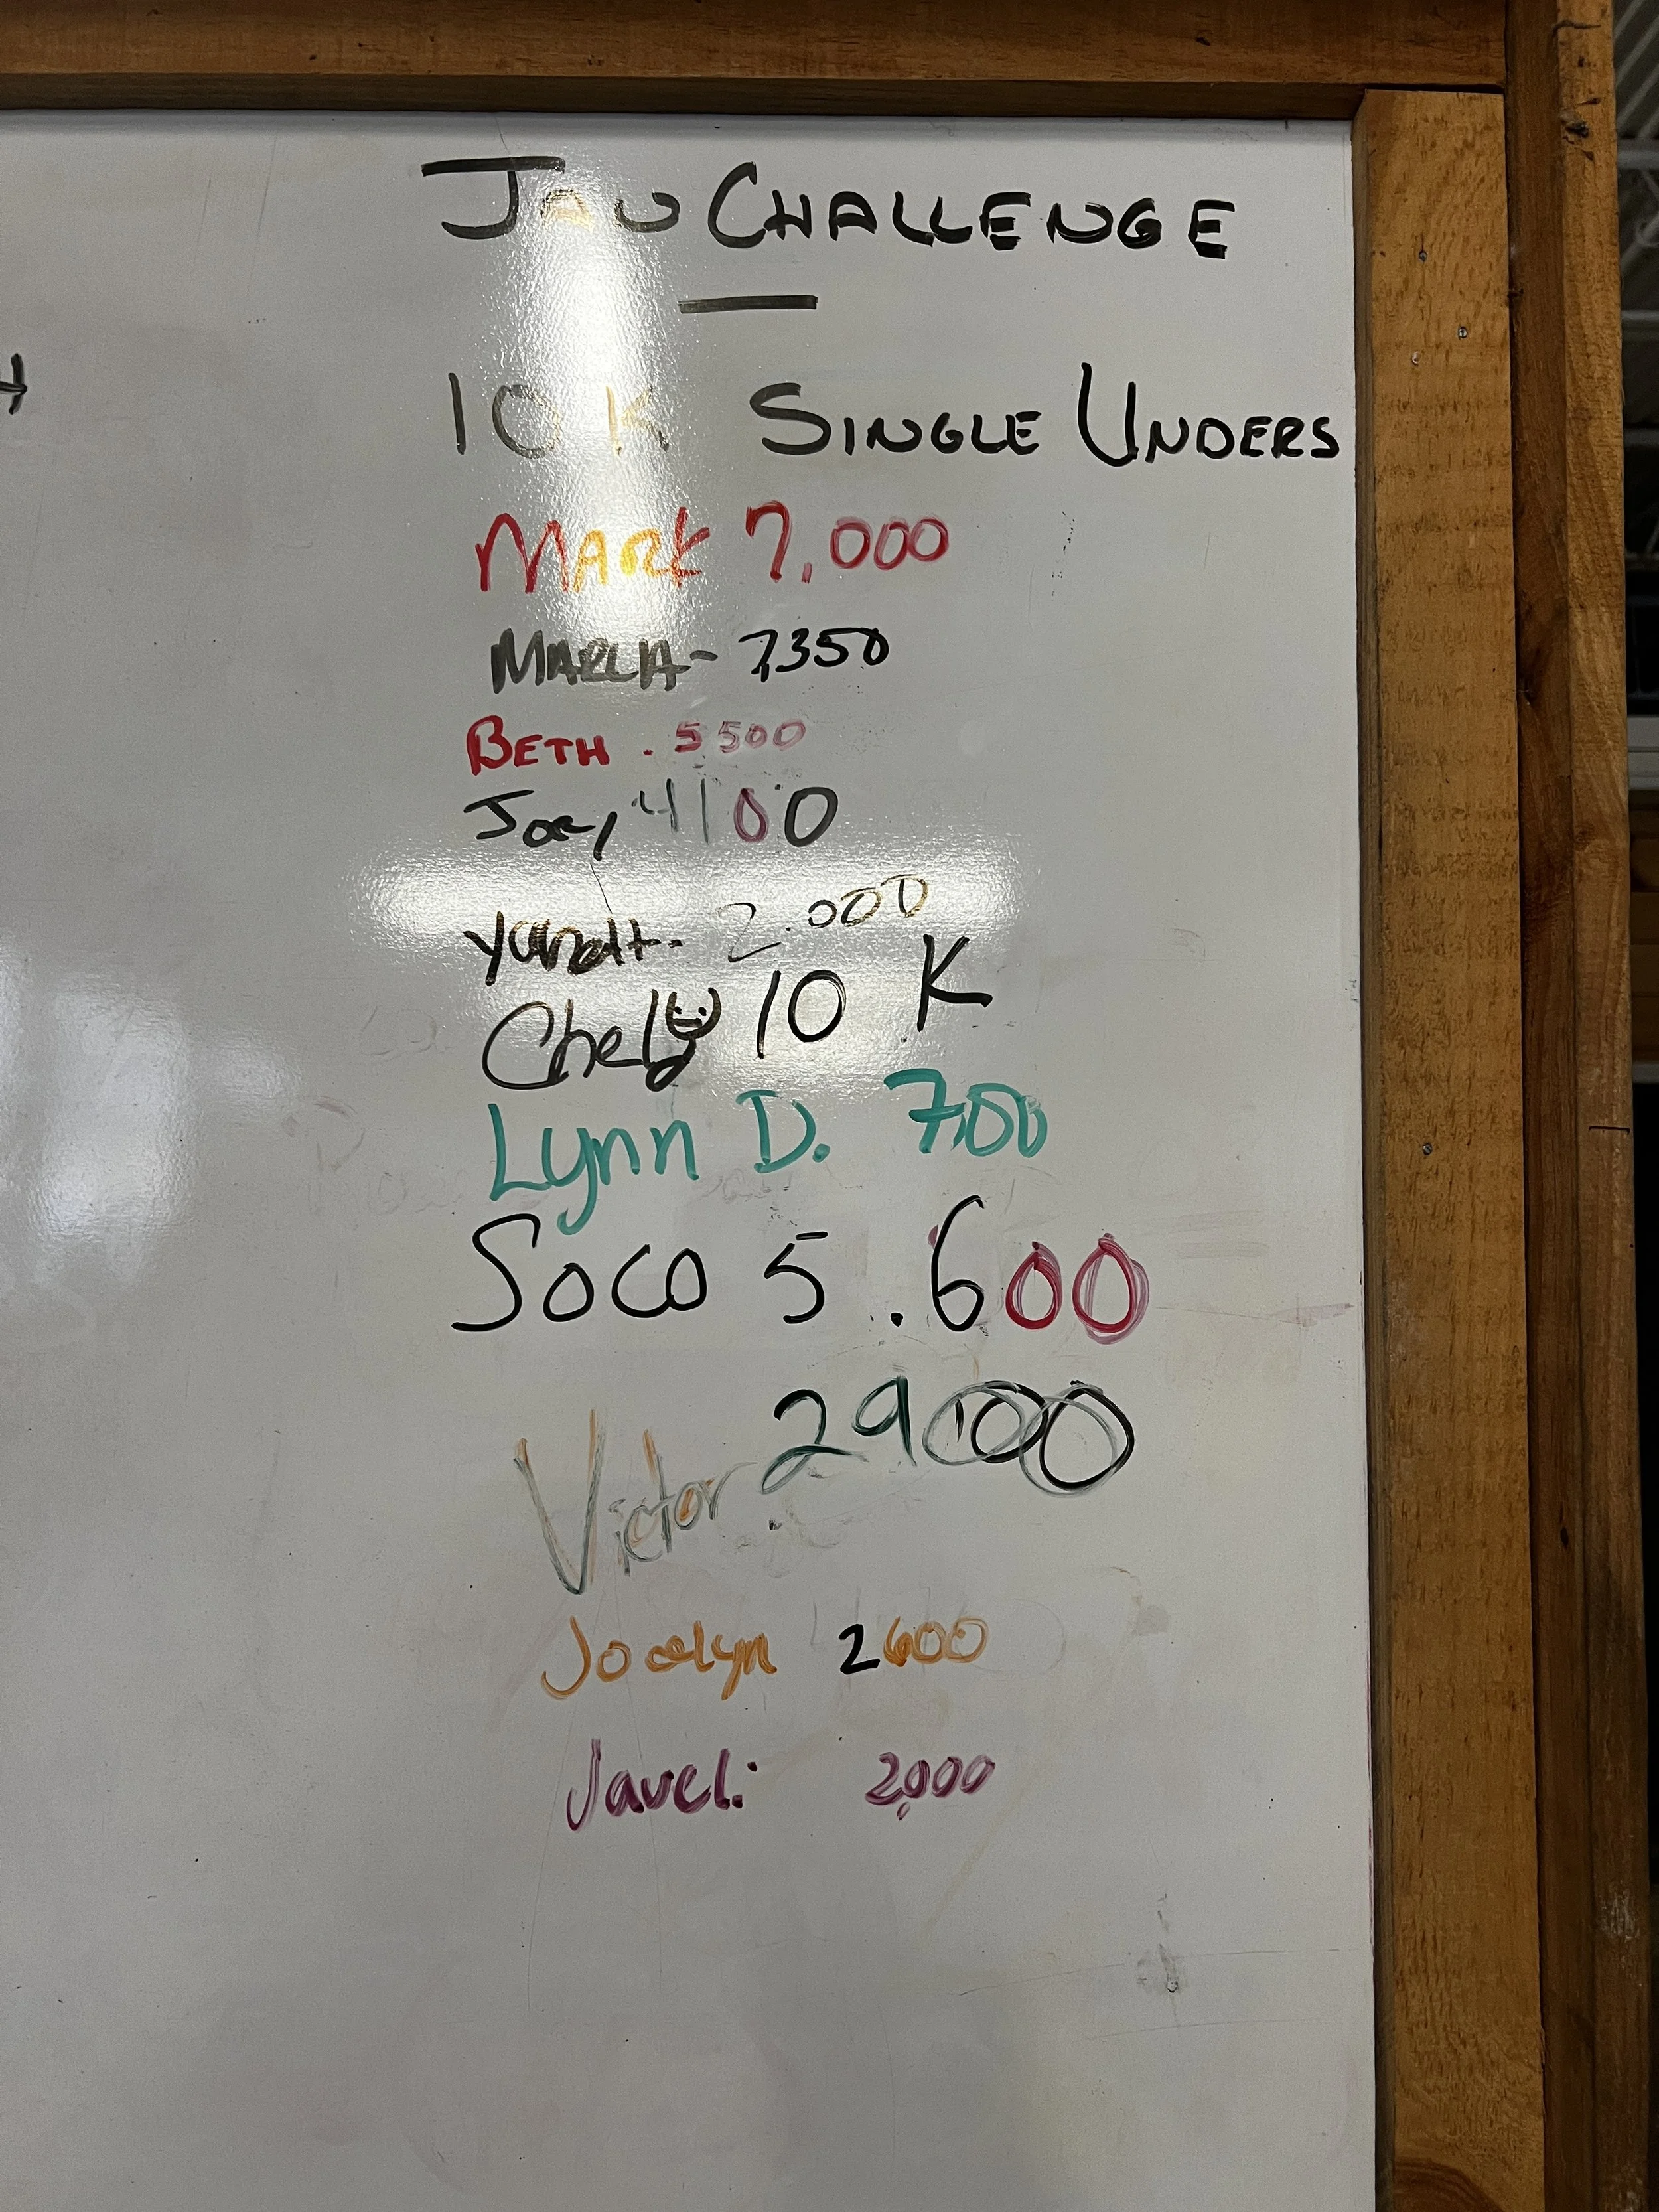 JAN CHALLENGE
10K SINGLE UNDERS
MARK 7,000
MARLA- 7,350
BETH . 5500
Joey 4100
2.000
Chely 10 K
Lynn D. 700
Soco 5.600
Victor 2900
Jocelyn 2600
Javel: 2,000